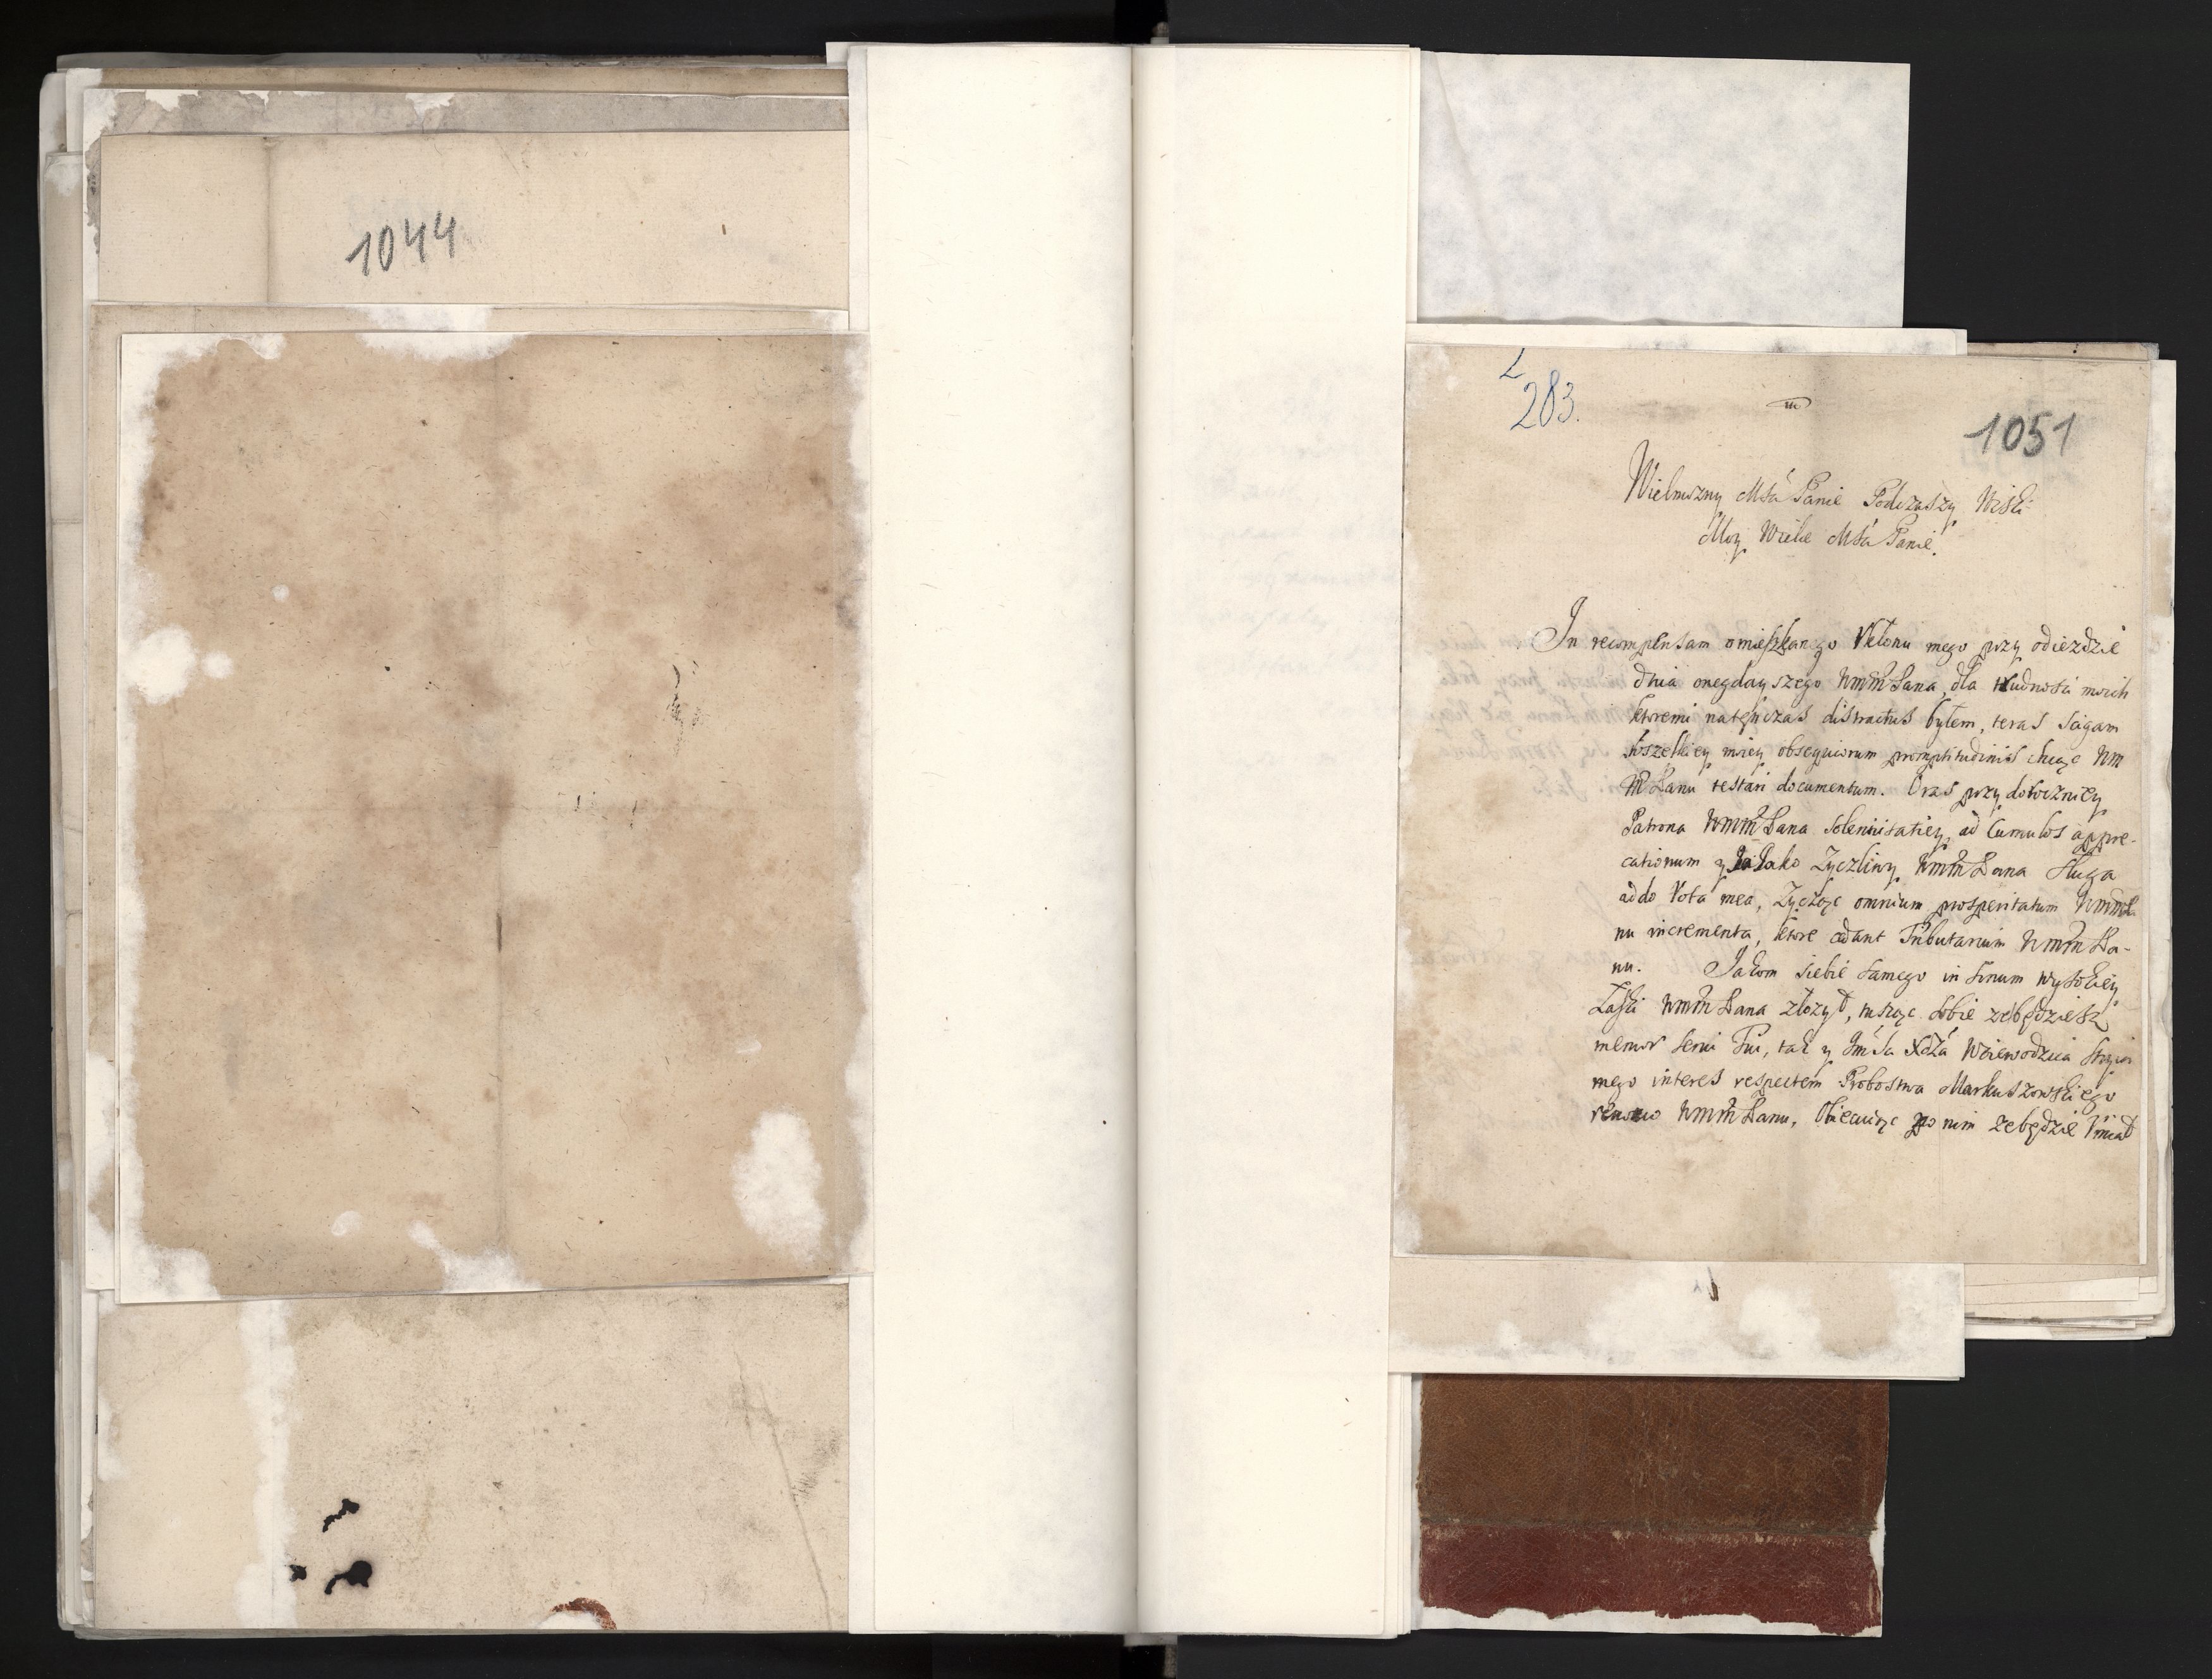 1044
L
283.
1051
Wielmozny MSci Panie Podczaszy
Moy Wielce MSci Panie.
In recompensam omieszkanego Vkłonu mego przy odiezdzie
dnia onegdayszego WMM Pana, dla trudnosci moich
ktoremi natęnczas distractus byłem, teras scigam
wszelkiey moiey obsequiorum promptitudinis chcąc WM
M Panu testari documentum. Oras przy doroczniey
Patrona WMM Pana Solennitatiey, ad Cumulos appre-
cationum y Ja Jako Zyczliwy WMM Pana Sługa
addo Vota mea, Zycząc omnium prosperitatum WMM Pa
nu incrementa, ktore adant Tributarium WMM Pa-
nu. Jakom siebie samego in sinum wysokiey
Łaski WMM Pana złozył, tusząc sobie ze będziesz
memor servi Tui, tak y JmSci Xdza Woiewodzica Stryia
mego interes respectem Probostwa Markuszowskiego
WMM Panu, Obiecuiąc po nim ze będzie Vmiał